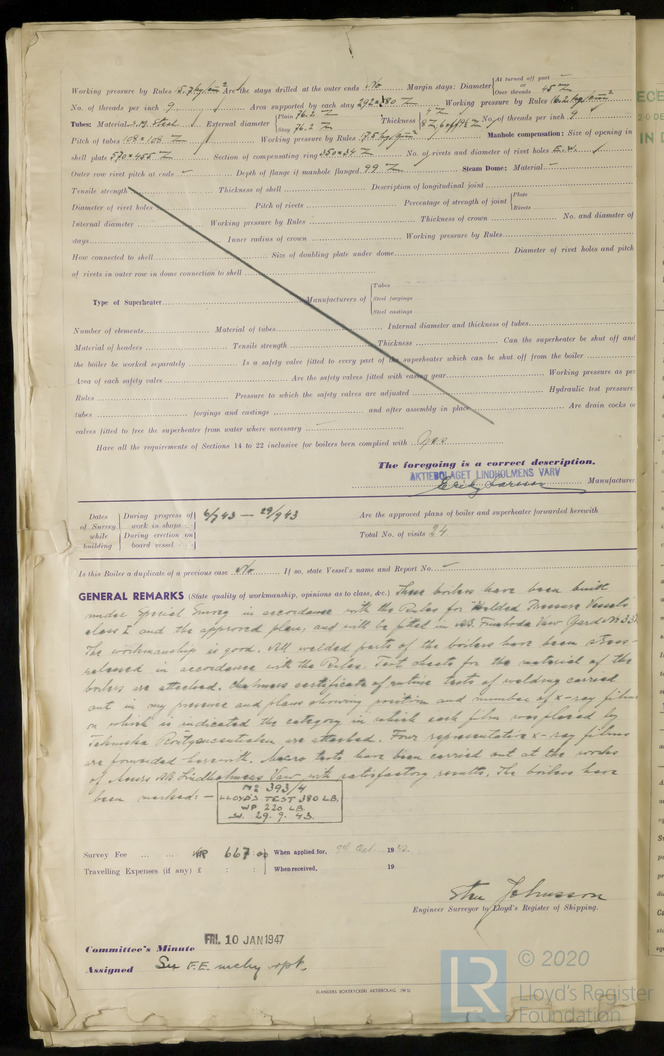 Working pressure by Rules 15.7 kg/cm² Are the stays drilled at the outer ends No Margin stays: Diameter At turned off part — or Over threads 45 Z
No. of threads per inch 9 Area supported by each stay 292×380 Z Working pressure by Rules 16.2 kg/cm²
Tubes: Material S.M. Steel External diameter Plain 76.2 Z Stay 76.2 Z Thickness No. of threads per inch 9
Pitch of tubes 108 × 108 Z Working pressure by Rules Manhole compensation: Size of opening in
shell plate 570×455 Z Section of compensating ring 350×34 Z No. of rivets and diameter of rivet holes E.W.
Outer row rivet pitch at ends — Depth of flange if manhole flanged 99 Z Steam Dome: Material —
Tensile strength Thickness of shell Description of longitudinal joint
Diameter of rivet holes Pitch of rivets Percentage of strength of joint Plate Rivets
Internal diameter Working pressure by Rules Thickness of crown No. and diameter of
stays Inner radius of crown Working pressure by Rules
How connected to shell Size of doubling plate under dome Diameter of rivet holes and pitch
of rivets in outer row in dome connection to shell
Type of Superheater Manufacturers of Tubes Steel forgings Steel castings
Number of elements Material of tubes Internal diameter and thickness of tubes
Material of headers Tensile strength Thickness Can the superheater be shut off and
the boiler be worked separately Is a safety valve fitted to every part of the superheater which can be shut off from the boiler
Area of each safety valve Are the safety valves fitted with easing gear Working pressure as per
Rules Pressure to which the safety valves are adjusted Hydraulic test pressure
tubes forgings and castings and after assembly in place Are drain cocks or
valves fitted to free the superheater from water where necessary
Have all the requirements of Sections 14 to 22 inclusive for boilers been complied with Yes
The foregoing is a correct description.
AKTIEBOLAGET LINDHOLMENS VARV
Erik Larsson Manufacturer
Dates of Survey while building During progress of work in shops 6/7 43 — 29/9 43 Are the approved plans of boiler and superheater forwarded herewith
During erection on board vessel Total No. of visits 24
Is this Boiler a duplicate of a previous case No If so, state Vessel's name and Report No. —
GENERAL REMARKS (State quality of workmanship, opinions as to class, &c.) These boilers have been built
under Special Survey in accordance with the Rules for Welded Pressure Vessels
class I and the approved plans, and will be fitted in Yard No
The workmanship is good. All welded parts of the boilers have been stress-
released in accordance with the Rules. Test sheets for the material of the
boilers are attached. Chalmers certificate of routine tests of welding carried
out in my presence and plans showing position and number of x-ray films
on which is indicated the category in which each film was placed by
Tekniska Röntgencentralen are attached. Four representative x-ray films
are forwarded herewith. Macro tests have been carried out at the works
of Messrs AB Lindholmens Varv with satisfactory results. The boilers have
been marked: —
No 393/4
LLOYD'S TEST 380 LB.
WP 220 LB
29.9.43.
Survey Fee KR 667.00 When applied for, 19
Travelling Expenses (if any) £ : : When received, 19
Sten Johnsson
Engineer Surveyor to Lloyd's Register of Shipping.
Committee's Minute FRI. 10 JAN 1947
Assigned See F.E. mchy rpt.
© 2020
LR Lloyd's Register
Foundation